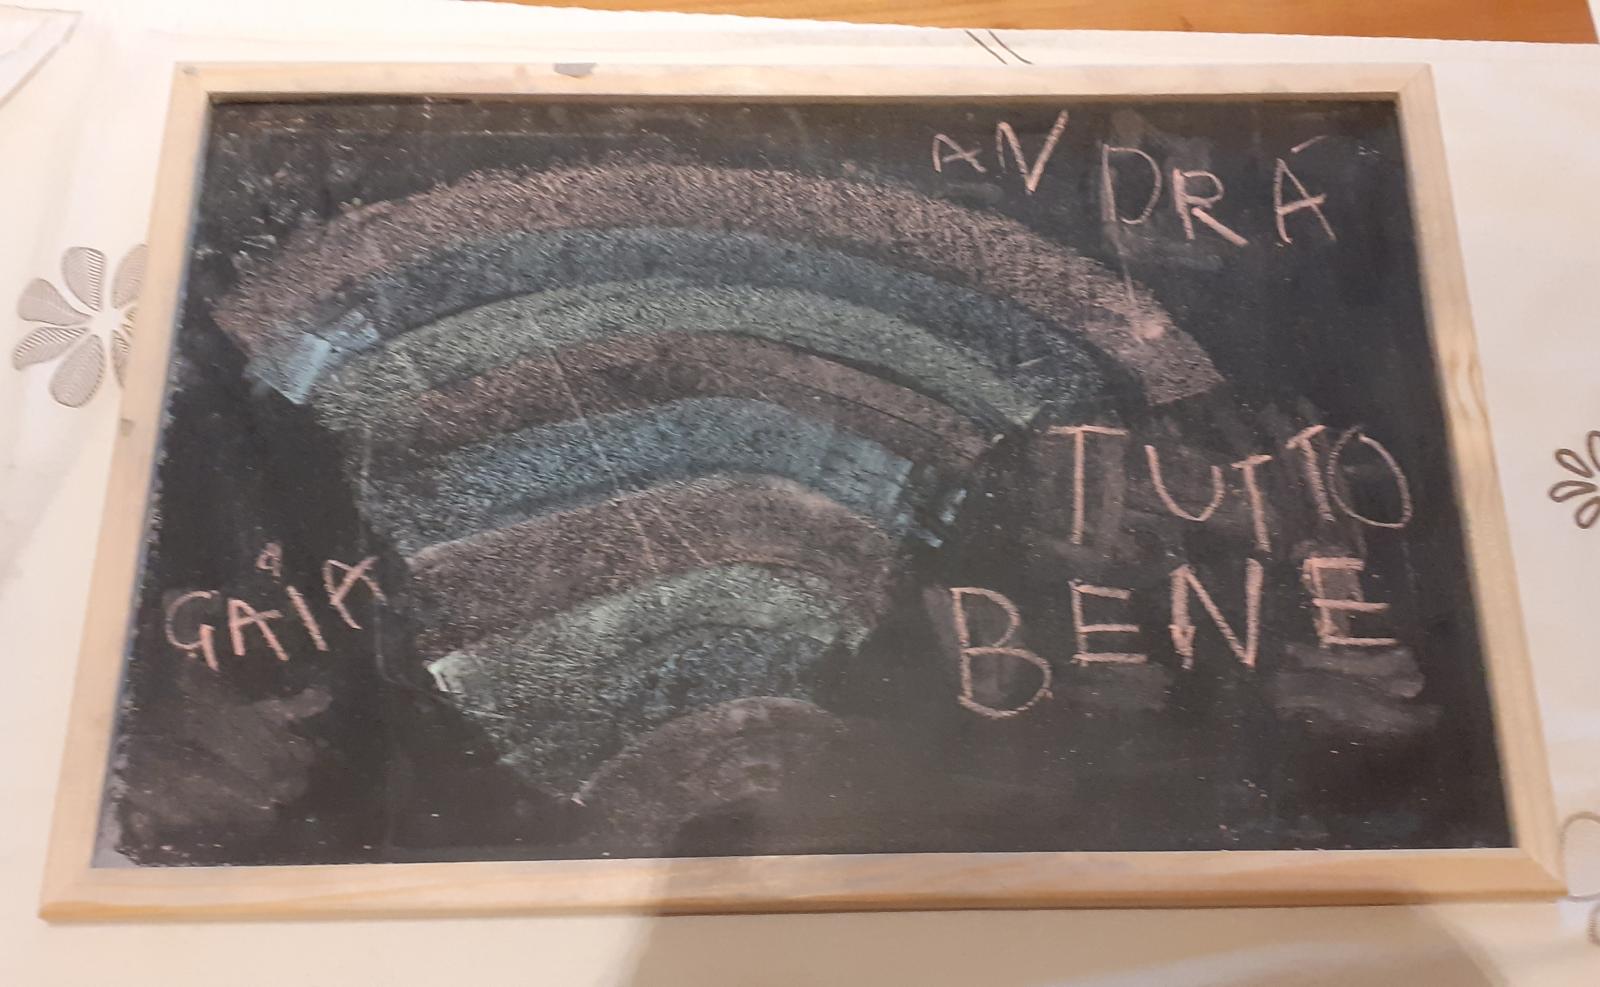 ANDRÁ
TUTTO
BENE
GAIA